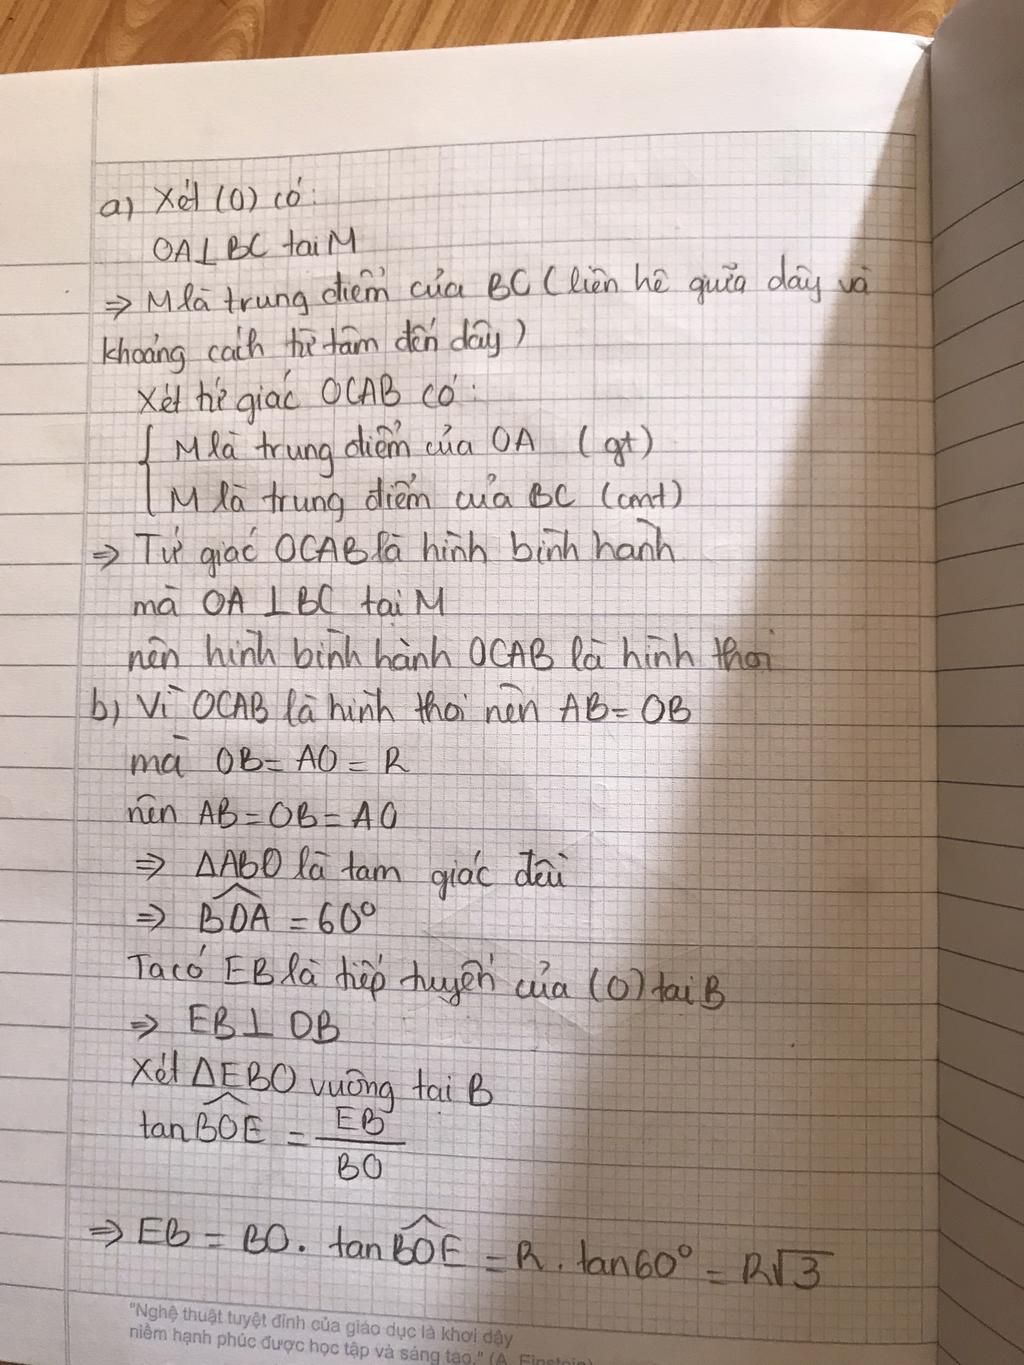 a) Xét (O) có:
OA⊥BC tại M
⇒ M là trung điểm của BC (liên hệ giữa dây và
khoảng cách từ tâm đến dây)
Xét tứ giác OCAB có:
{ M là trung điểm của OA (gt)
M là trung điểm của BC (cmt)
⇒ Tứ giác OCAB là hình bình hành
mà OA ⊥ BC tại M
nên hình bình hành OCAB là hình thoi
b) Vì OCAB là hình thoi nên AB = OB
mà OB = AO = R
nên AB = OB = AO
⇒ ΔABO là tam giác đều
⇒ \widehat{BOA} = 60°
Ta có EB là tiếp tuyến của (O) tại B
⇒ EB ⊥ OB
Xét ΔEBO vuông tại B
tan \widehat{BOE} = \frac{EB}{BO}
⇒ EB = BO . tan \widehat{BOE} = R . tan60° = R√3
"Nghệ thuật tuyệt đỉnh của giáo dục là khơi dậy
niềm hạnh phúc được học tập và sáng tạo." (A. Einstein)